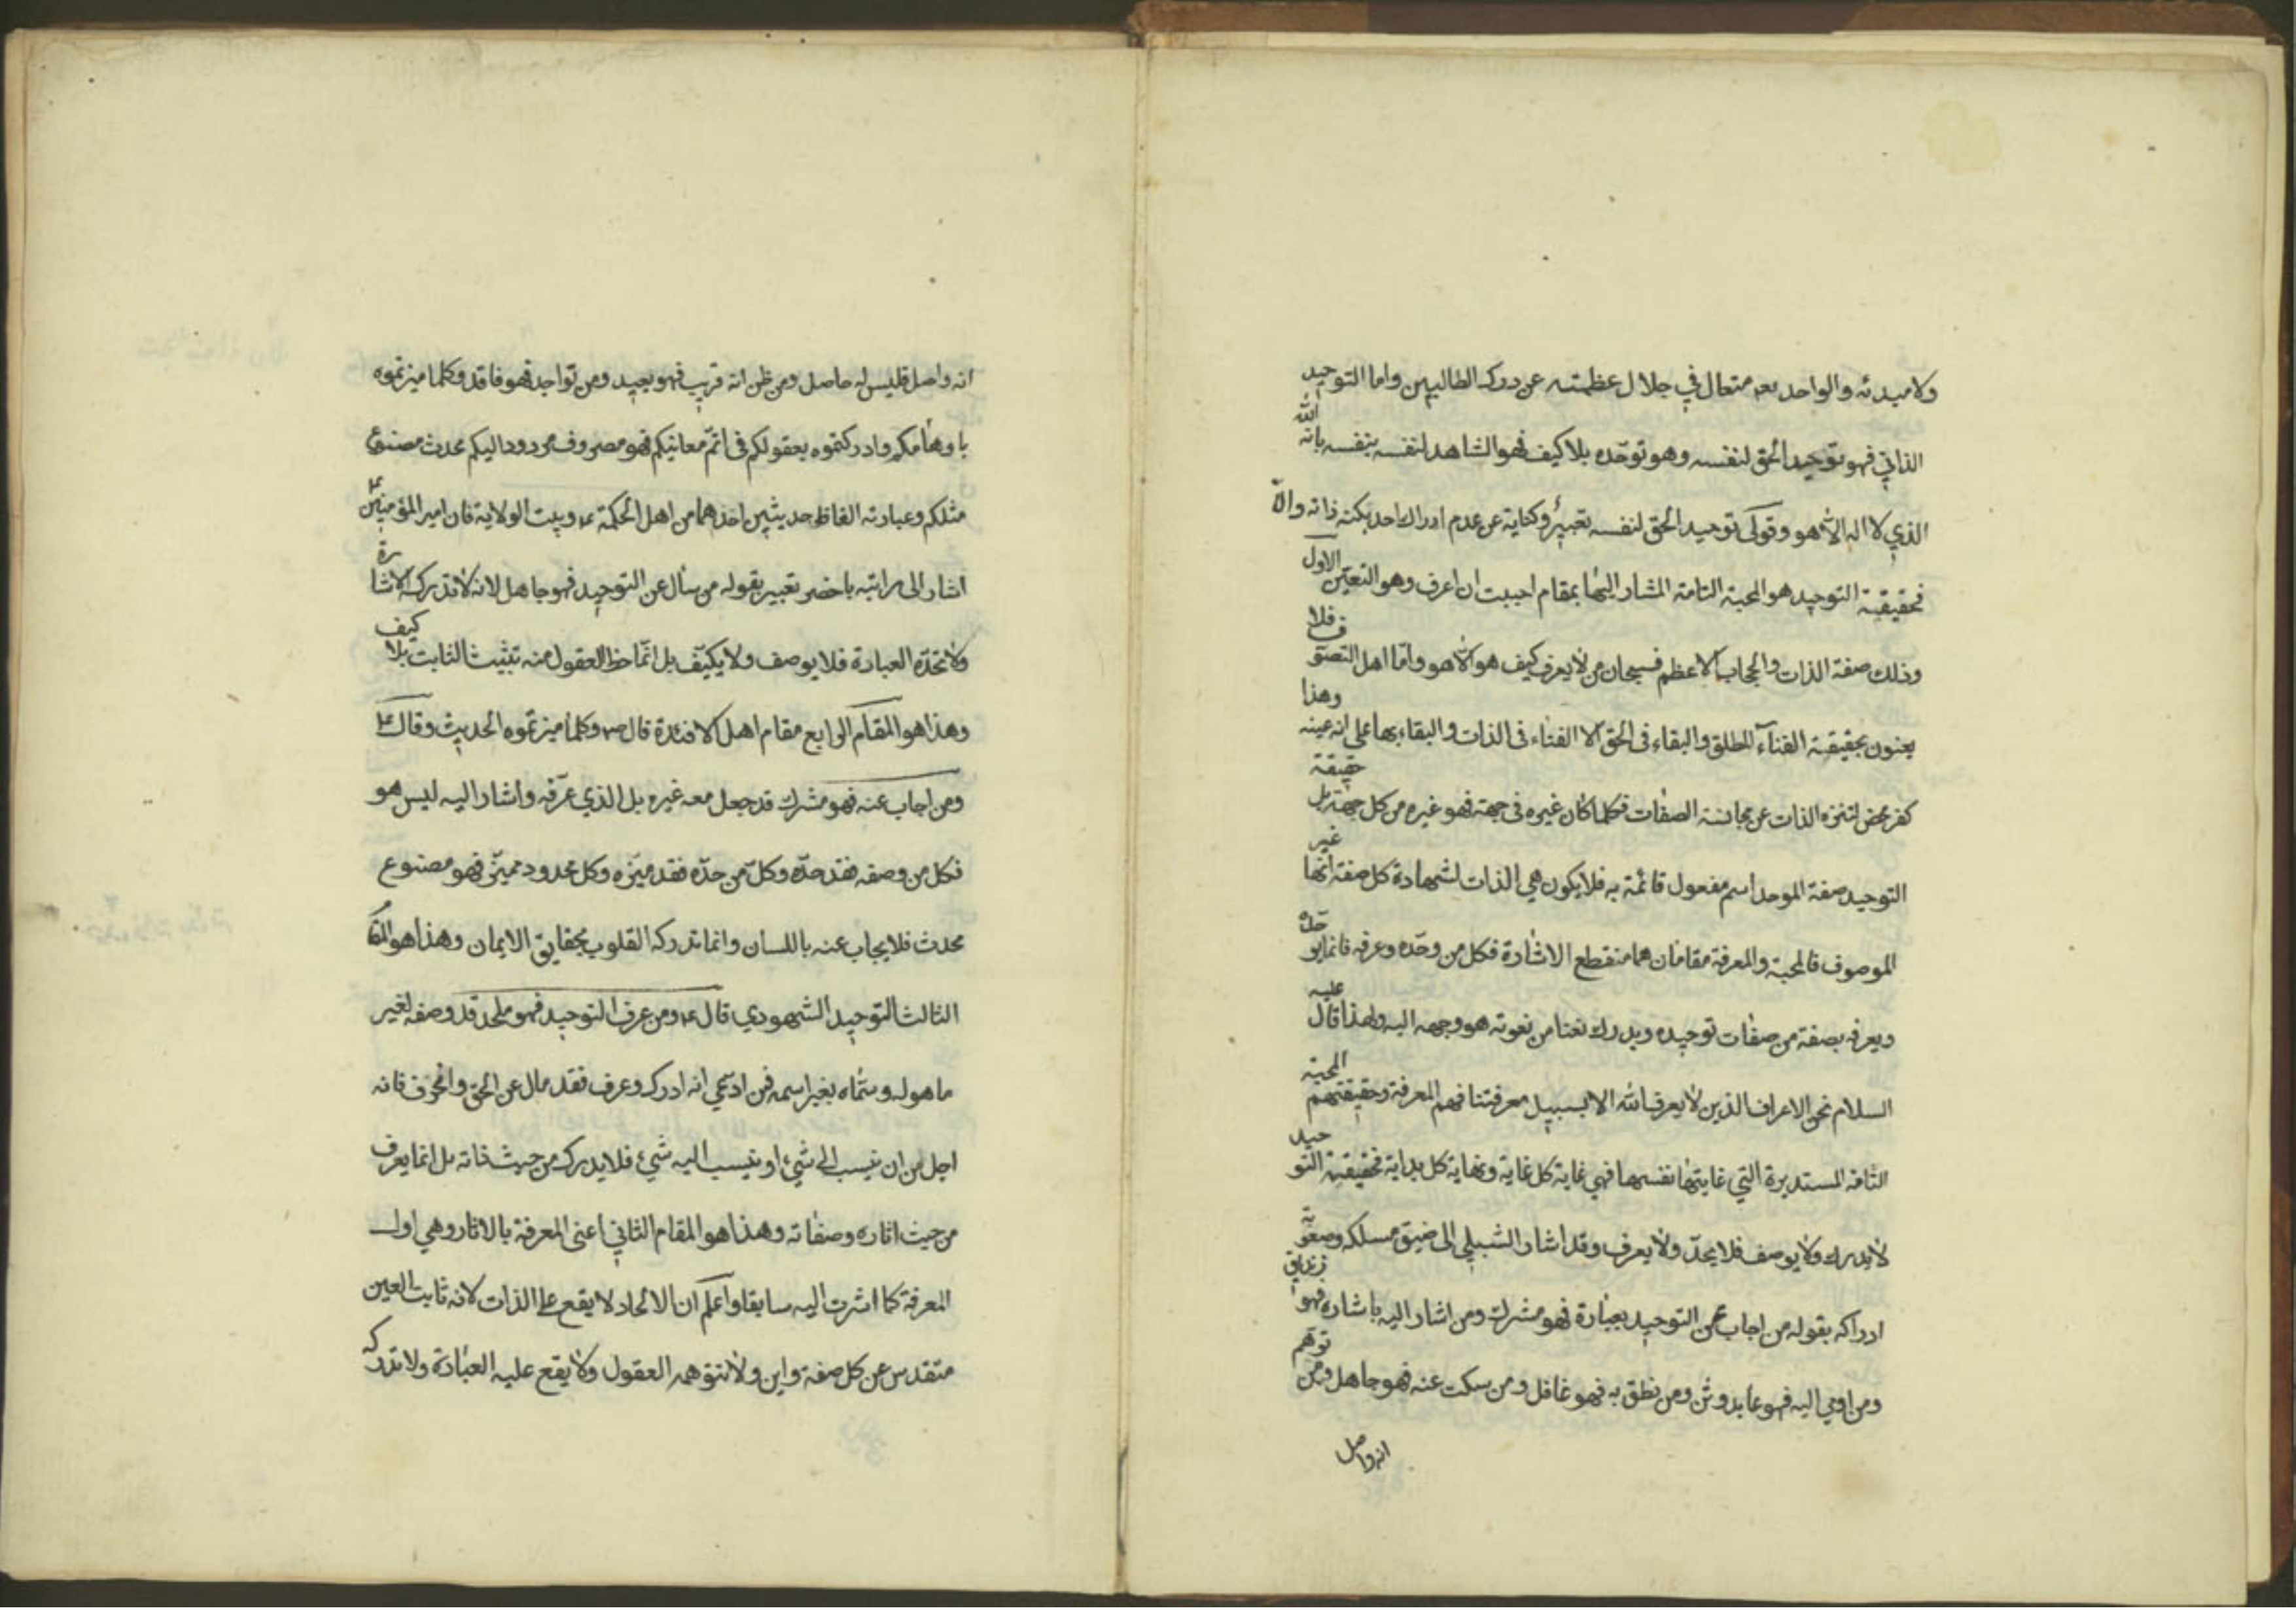 ولامبدئه والواحد بعد متعال في جلال عظمته عن درك الطالبين واما التوحيد
الذاتي فهو توحيد الحق لنفسه وهو توحّده بلا كيف فهو الشاهد لنفسه بنفسه بانه الله
الذي لا اله الا هو وقولي توحيد الحق لنفسه تعبيرٌ وكناية عن عدم ادراك احد بكنه ذاته والا
فحقيقة التوحيد هو المحبة التامة المشار اليها بمقام احببت ان اعرف وهو التعيّن الاول
وذلك صفة الذات والحجاب الاعظم فسبحان من لا يعرف كيف هو الا هو وامّا اهل التصوّف فلا
يعنون بحقيقة الفناء المطلق والبقاء في الحق الا الفناء في الذات والبقاء بها على انه عينه وهذا
كفر محض لتنزه الذات عن مجانسة الصفات فكلما كان غيره في جهة فهو غيره من كل جهة بل حقيقة
التوحيد صفة الموحد اسم مفعول قائمة به فلا يكون هي الذات لشهادة كل صفة انها غير
الموصوف فالمحبة والمعرفة مقامان هما منقطع الاشارة فكل من وحّده وعرفه فانما يوحّده
ويعرفه بصفة من صفات توحيده ويدرك نعتا من نعوته هو وجهه اليه ولهذا قال عليه
السلام نحن الاعراف الذين لا يعرف الله الا بسبيل معرفتنا فهم المعرفة وحقيقتهم المحبة
التامة المستديرة التي غايتها نفسها فهي غاية كل غاية ونهاية كل بداية فحقيقة التوحيد
لا يدرك ولا يوصف فلا يحدّ ولا يعرف وقد اشار الشبيلي الى ضيق مسلكه وصعوبة
ادراكه بقوله من اجاب عن التوحيد بعبارة فهو مشرك ومن اشار اليه باشارة فهو زنديق
ومن اومي اليه فهو عابد وثن ومن نطق به فهو غافل ومن سكت عنه فهو جاهل ومن توهم
انه واصل
انه واصل فليس له حاصل ومن ظن انه قريب فهو بعيد ومن تواجد فهو فاقد وكلما ميزتموه
باوهامكم وادركتموه بعقولكم في اتمّ معانيكم فهو مصروف مردود اليكم محدث مصنوع
مثلكم وعبارته الفاظ حديثين اخذهما من اهل الحكمة ع وبيت الولاية فان امير المؤمنين ع
اشار الى مراتبه باخضر تعبير بقوله من سأل عن التوحيد فهو جاهل لانه لا تدركه الاشارة
ولا تحدّه العبارة فلا يوصف ولا يكيّف بل انّما حظ العقول منه تثبيث الثابت بلا كيف
وهذا هو المقام الرابع مقام اهل الافئدة قال ص وكلما ميزتموه الحديث وقال ع
ومن اجاب عنه فهو مشرك قد جعل معه غيره بل الذي عرّفه واشار اليه ليس هو
فكل من وصفه فقد حدّه وكلّ من حدّه فقد ميّزه وكل محدود مميّز فهو مصنوع
محدث فلا يجاب عنه باللسان وانما تدركه القلوب بحقايق الايمان وهذا هو المقام
الثالث التوحيد الشهودي قال ع ومن عرف التوحيد فهو ملحد قد وصفه لغير
ما هو له وسمّاه بغير اسمه فمن ادعي انه ادركه وعرف فقد مال عن الحق وانحرف فانه
اجل من ان ينسب الى شيء او ينسب اليه شيء فلا يدرك من حيث ذاته بل انما يعرف
من حيث اثاره وصفاته وهذا هو المقام الثاني اعنى المعرفة بالاثار وهي اول
المعرفة كما اشرت اليه سابقا واعلم ان الالحاد لا يقع على الذات لانه ثابت العين
متقدس عن كل صفة واين ولا تتوهمه العقول ولا يقع عليه العبارة ولا تدركه